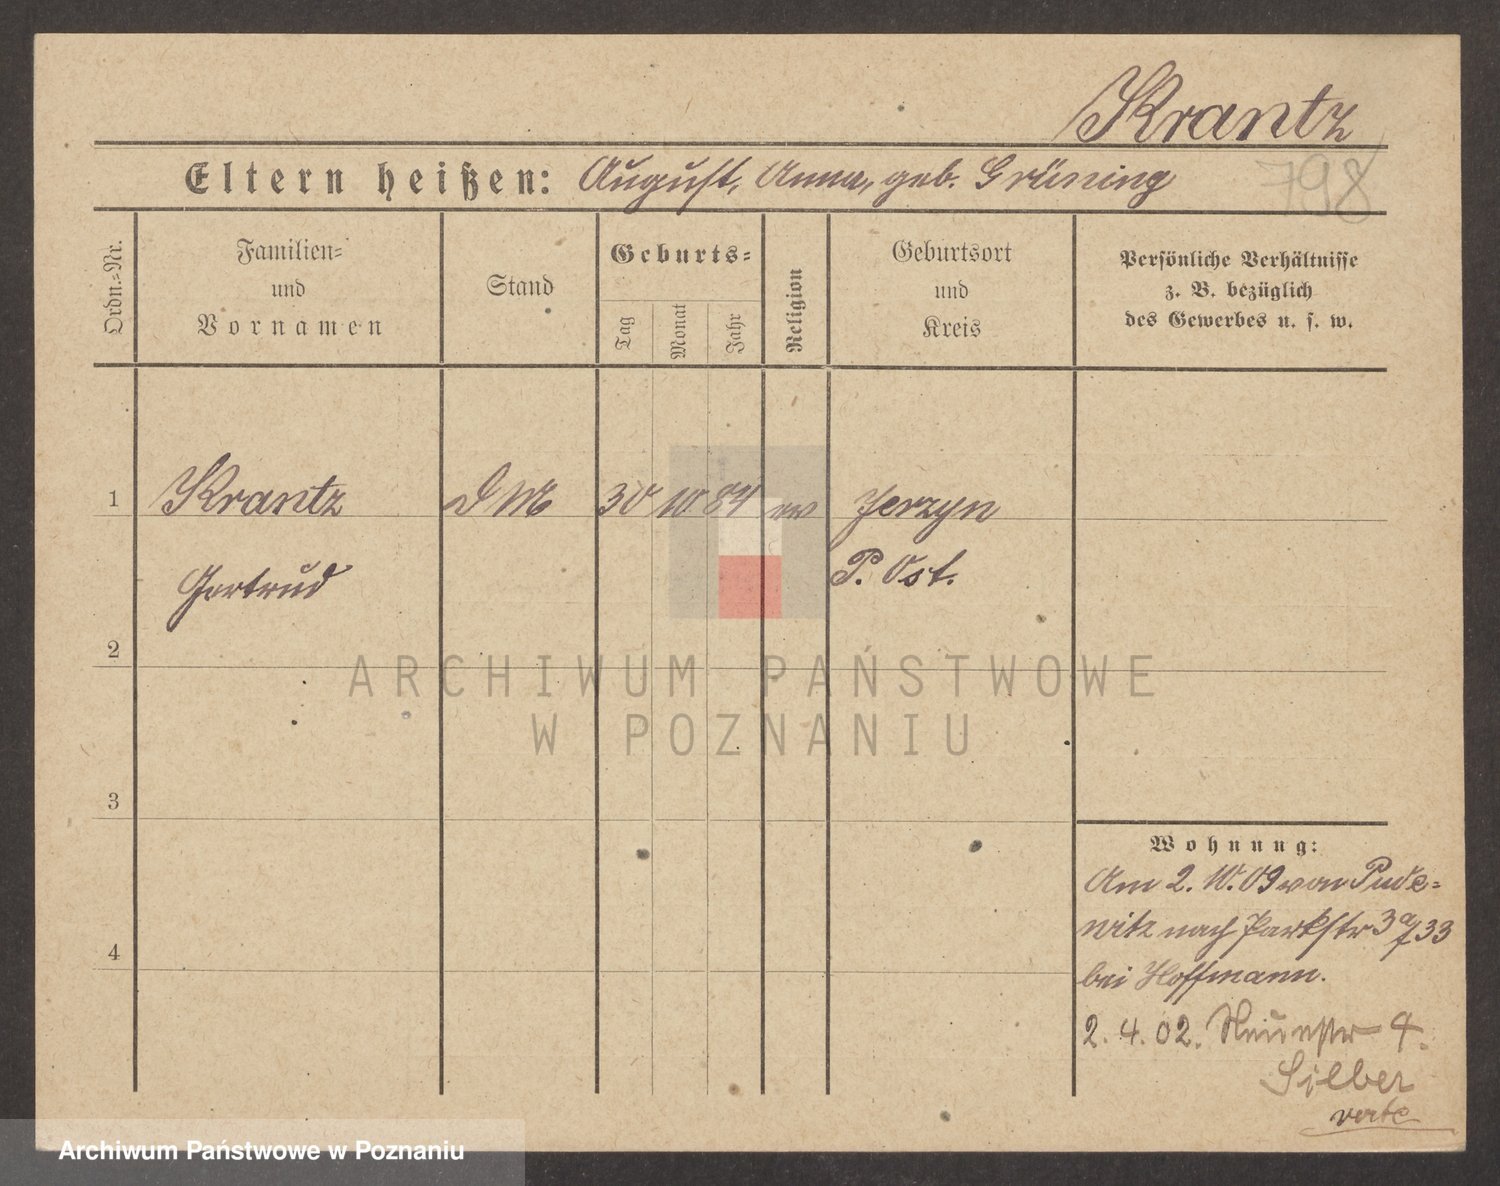 Krantz
Eltern heißen: August, Anna, geb. Grüning
798
Ordn.-Nr.
Familien-
und
Vornamen
Stand
Geburts-
Tag
Monat
Jahr
Religion
Geburtsort
und
Kreis
Persönliche Verhältnisse
z. B. bezüglich
des Gewerbes u. s. w.
1 Krantz DM 30 10 84 ev Jerzyn
Gertrud P. Ost.
2
3
4
ARCHIWUM PAŃSTWOWE
W POZNANIU
Wohnung:
Am 2. 10. 09 von Pude-
witz nach Parkstr 3a/33
bei Hoffmann.
2. 4. 02. Neuestr 4.
Silber
verte
Archiwum Państwowe w Poznaniu